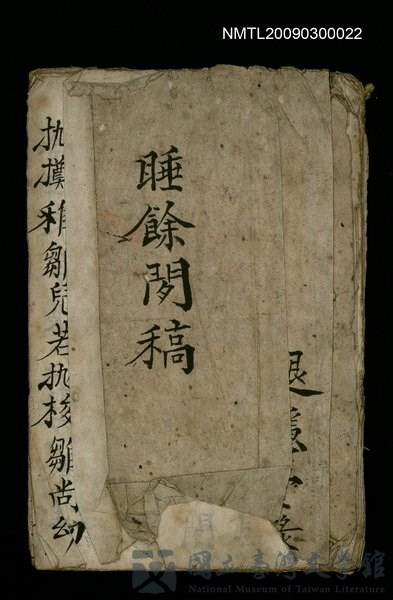 NMTL20090300022
睡餘閒稿
退
扒撲稚鄒兒若扒梭雛尚幼
國立臺灣文學館
National Museum of Taiwan Literature